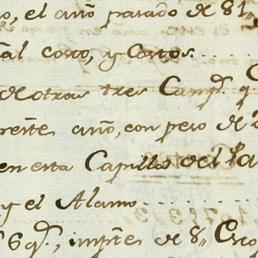 o, el año pasado de 81"
al coro, y Costos
de otras tres Camp.s q
rente año, con peso de 2
en esta Capilla del Sa
y el Alamo
6 q.s, imptes de 8" Esc